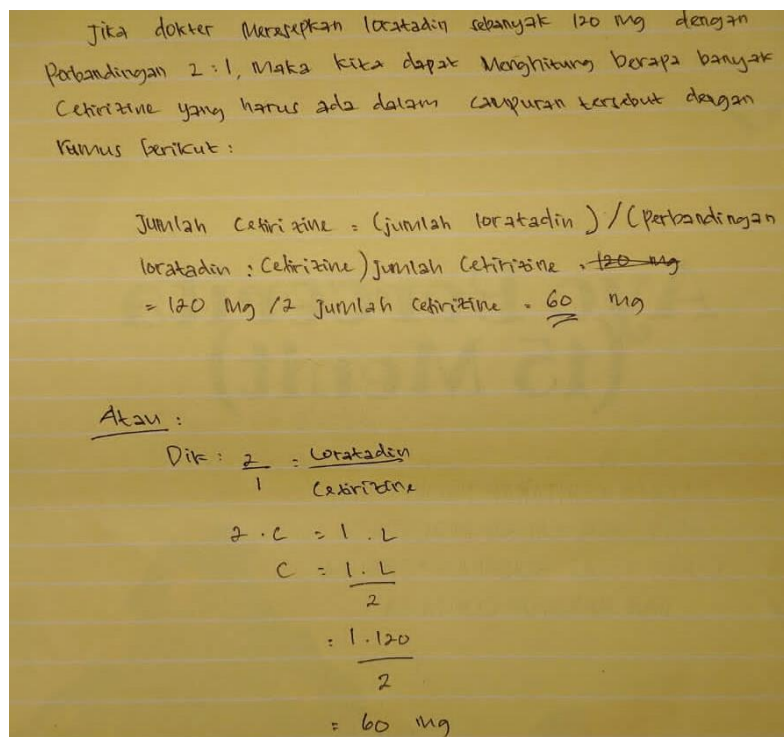 Jika dokter Meresepkan loratadin sebanyak 120 mg dengan
Perbandingan 2:1, Maka kita dapat Menghitung berapa banyak
Cetirizine yang harus ada dalam campuran tersebut dengan
rumus berikut:
Jumlah Cetirizine = (jumlah loratadin) / (perbandingan
loratadin : Cetirizine) jumlah Cetirizine = 120 mg
= 120 mg / 2 jumlah Cetirizine = 60 mg
Atau :
Dik : 2/1 = Loratadin/Cetirizine
2 . C = 1 . L
C = 1 . L
2
= 1 . 120
2
= 60 mg